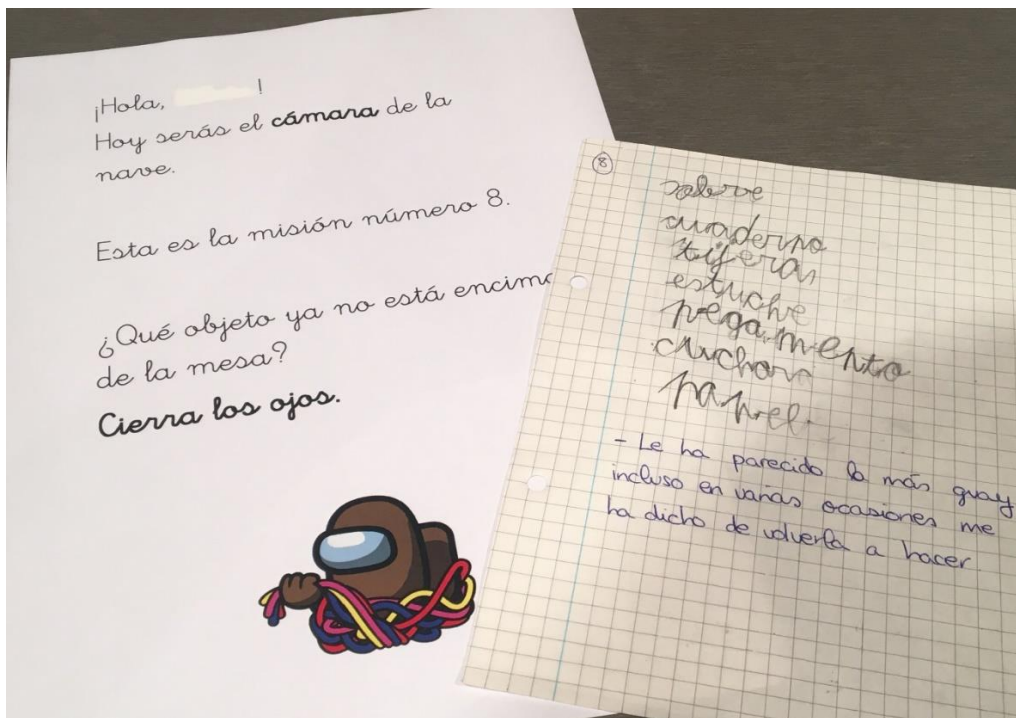 ¡Hola, !
Hoy serás el cámara de la
nave.
Esta es la misión número 8.
¿Qué objeto ya no está encima
de la mesa?
Cierra los ojos.
8
cuaderno
tijeras
estuche
pegamento
cuchara
papel.
- Le ha parecido la más guay
incluso en varias ocasiones me
ha dicho de volverla a hacer